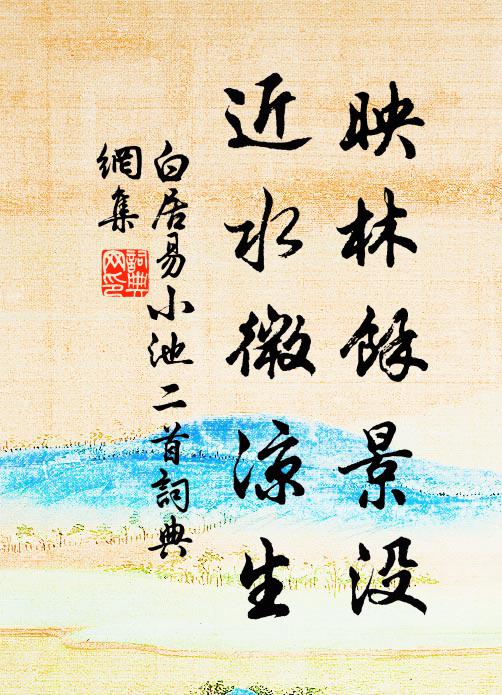 映林餘景没
近水微涼生
白居易小池二首詞典
網集
詞典
网印